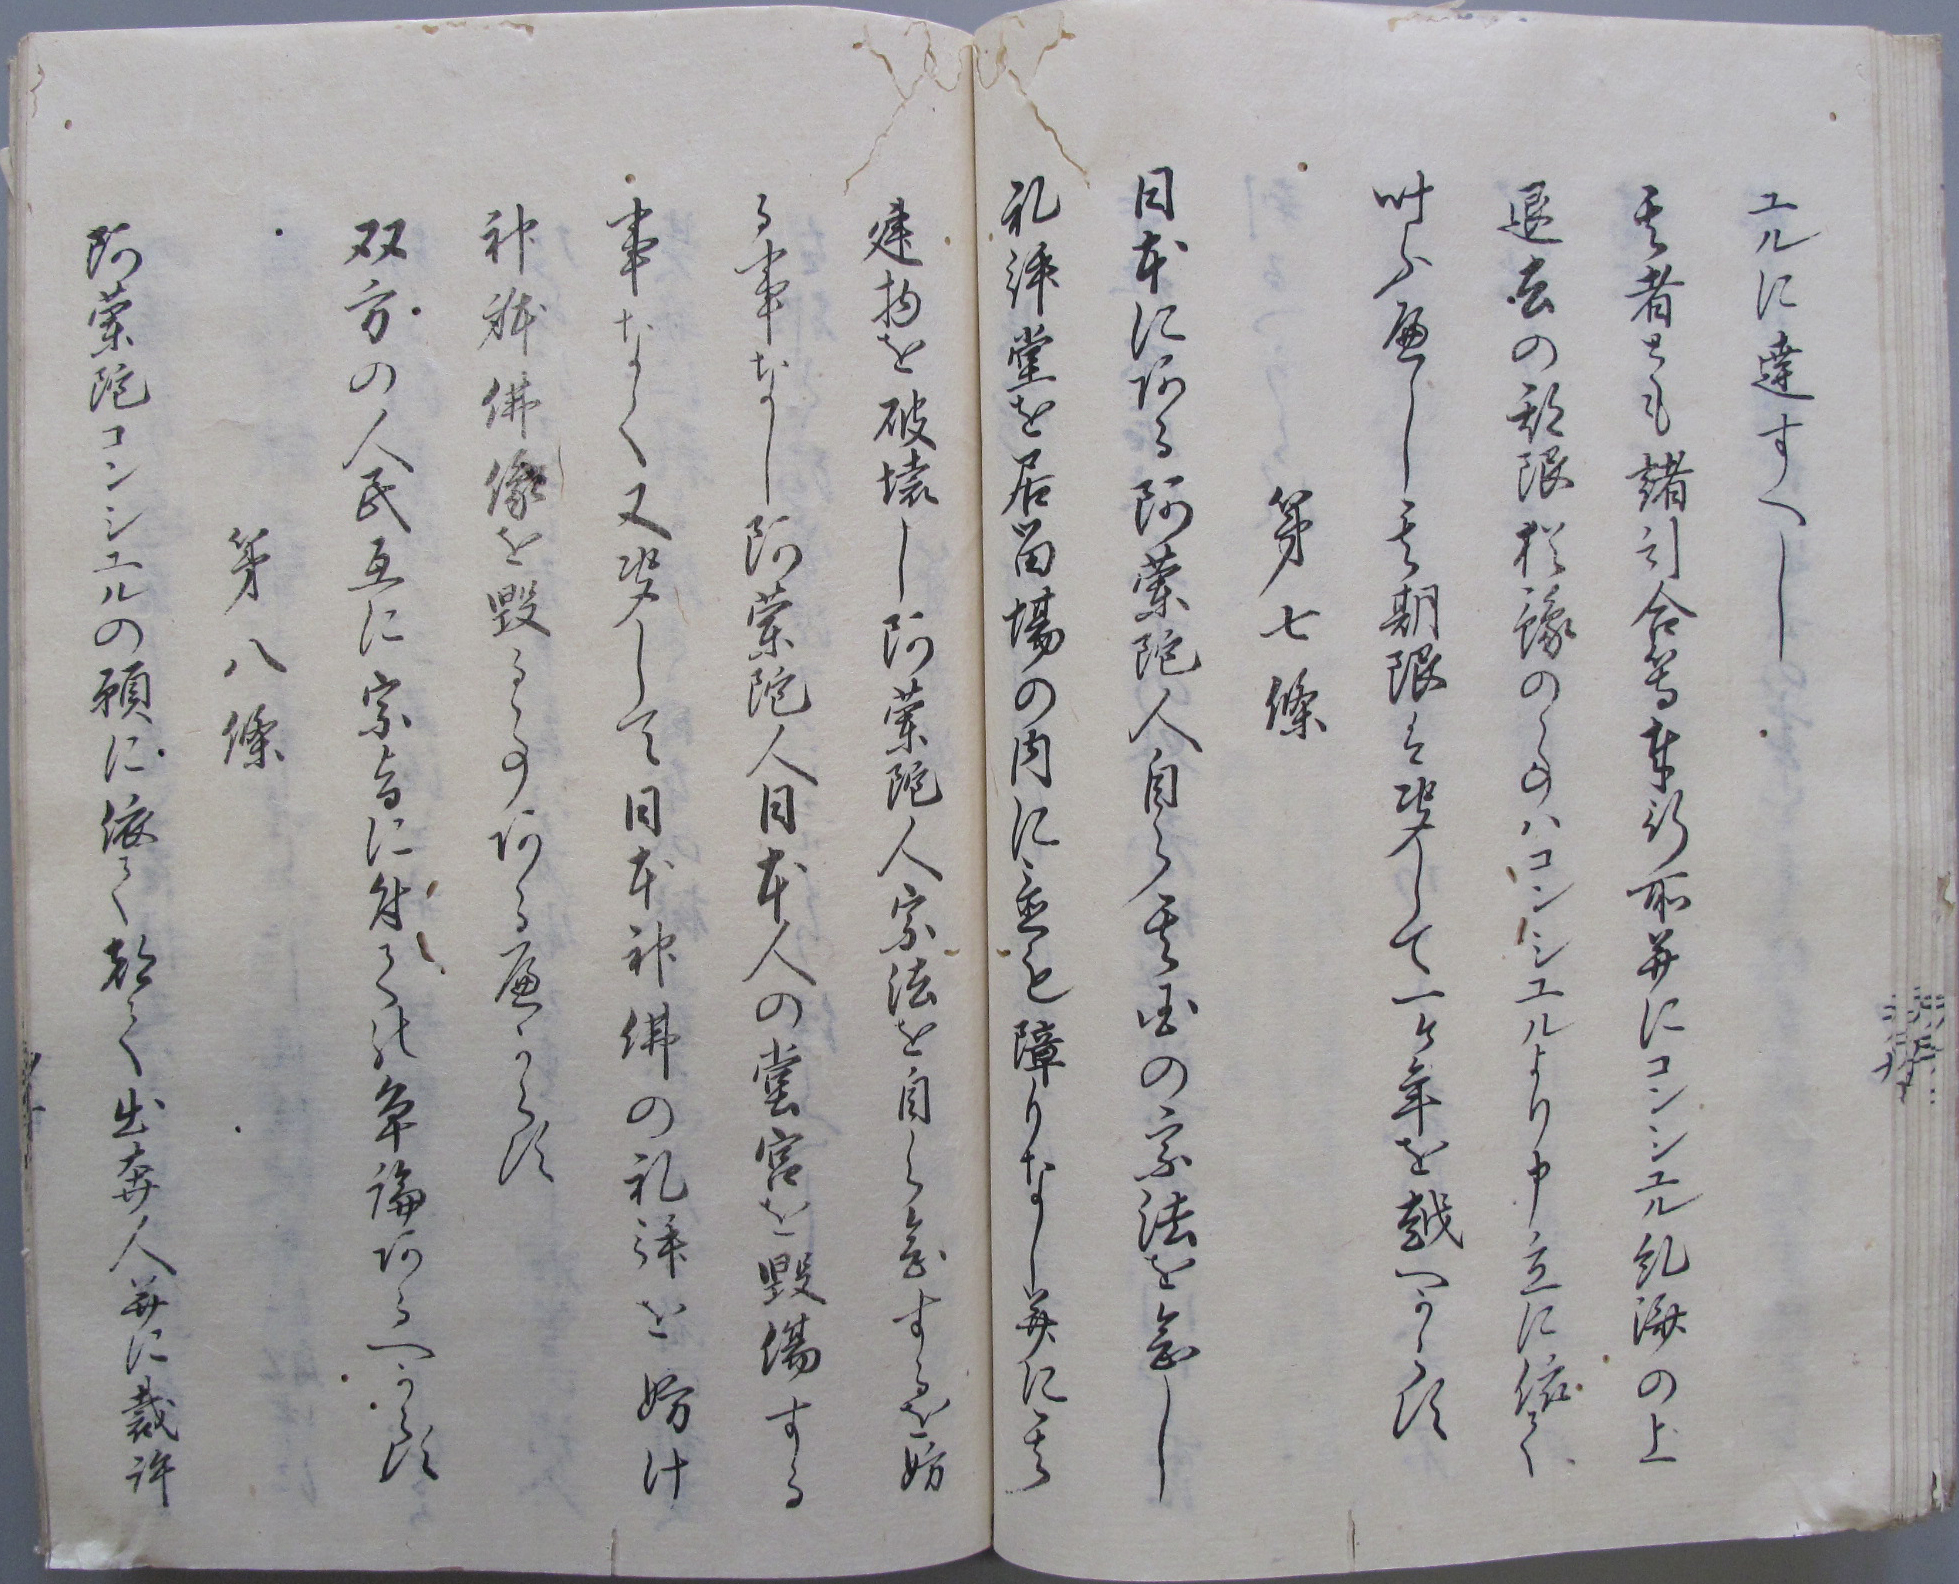 エルに達すへし
其者とも諸引合等奉行所并にコンシエル糺済の上
退去の期限猶豫の事ハコンシエルより申立に依て
叶ふ廉し其期限は決して一ケ年を越へからす
第七條
日本に在る阿蘭陀人自ら其国の宗法を念し
礼拝堂を居留場の内に置も障りなし并に其
建物を破壊し阿蘭陀人宗法を自ら念するを妨
る事なし阿蘭陀人日本人の堂宮を毀傷する
事なく又決して日本神佛の礼拝を妨け
神躰佛像を毀る事ある廉からす
双方の人民互に宗旨に付ての争論あるへからす
第八條
阿蘭陀コンシエルの願に依て都て出奔人并に裁許